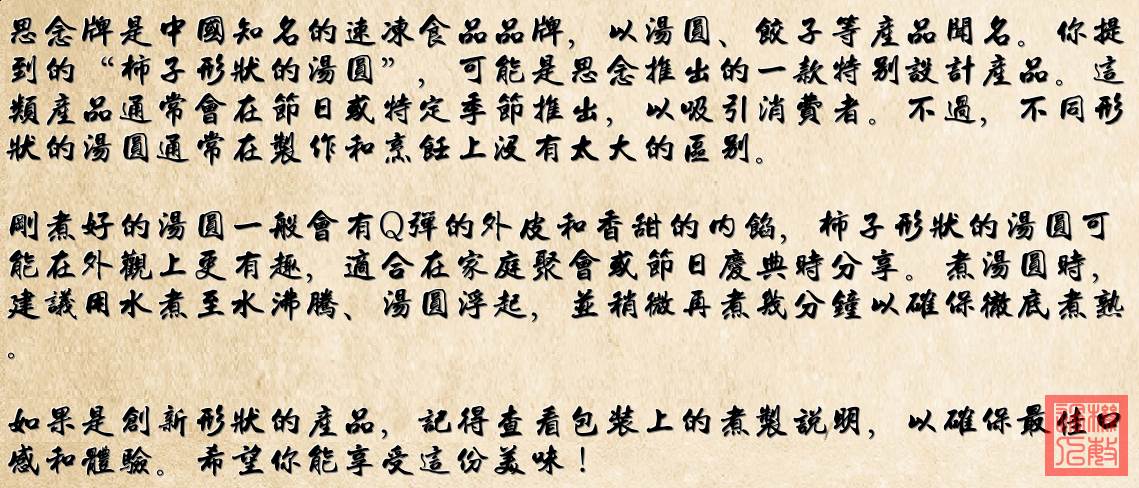 思念牌是中國知名的速凍食品品牌，以湯圓、餃子等產品聞名。你提
到的“柿子形狀的湯圓”，可能是思念推出的一款特別設計產品。這
類產品通常會在節日或特定季節推出，以吸引消費者。不過，不同形
狀的湯圓通常在製作和烹飪上沒有太大的區別。
剛煮好的湯圓一般會有Q彈的外皮和香甜的內餡，柿子形狀的湯圓可
能在外觀上更有趣，適合在家庭聚會或節日慶典時分享。煮湯圓時，
建議用水煮至水沸騰、湯圓浮起，並稍微再煮幾分鐘以確保徹底煮熟
。
如果是創新形狀的產品，記得查看包裝上的煮製説明，以確保最佳口
感和體驗。希望你能享受這份美味！